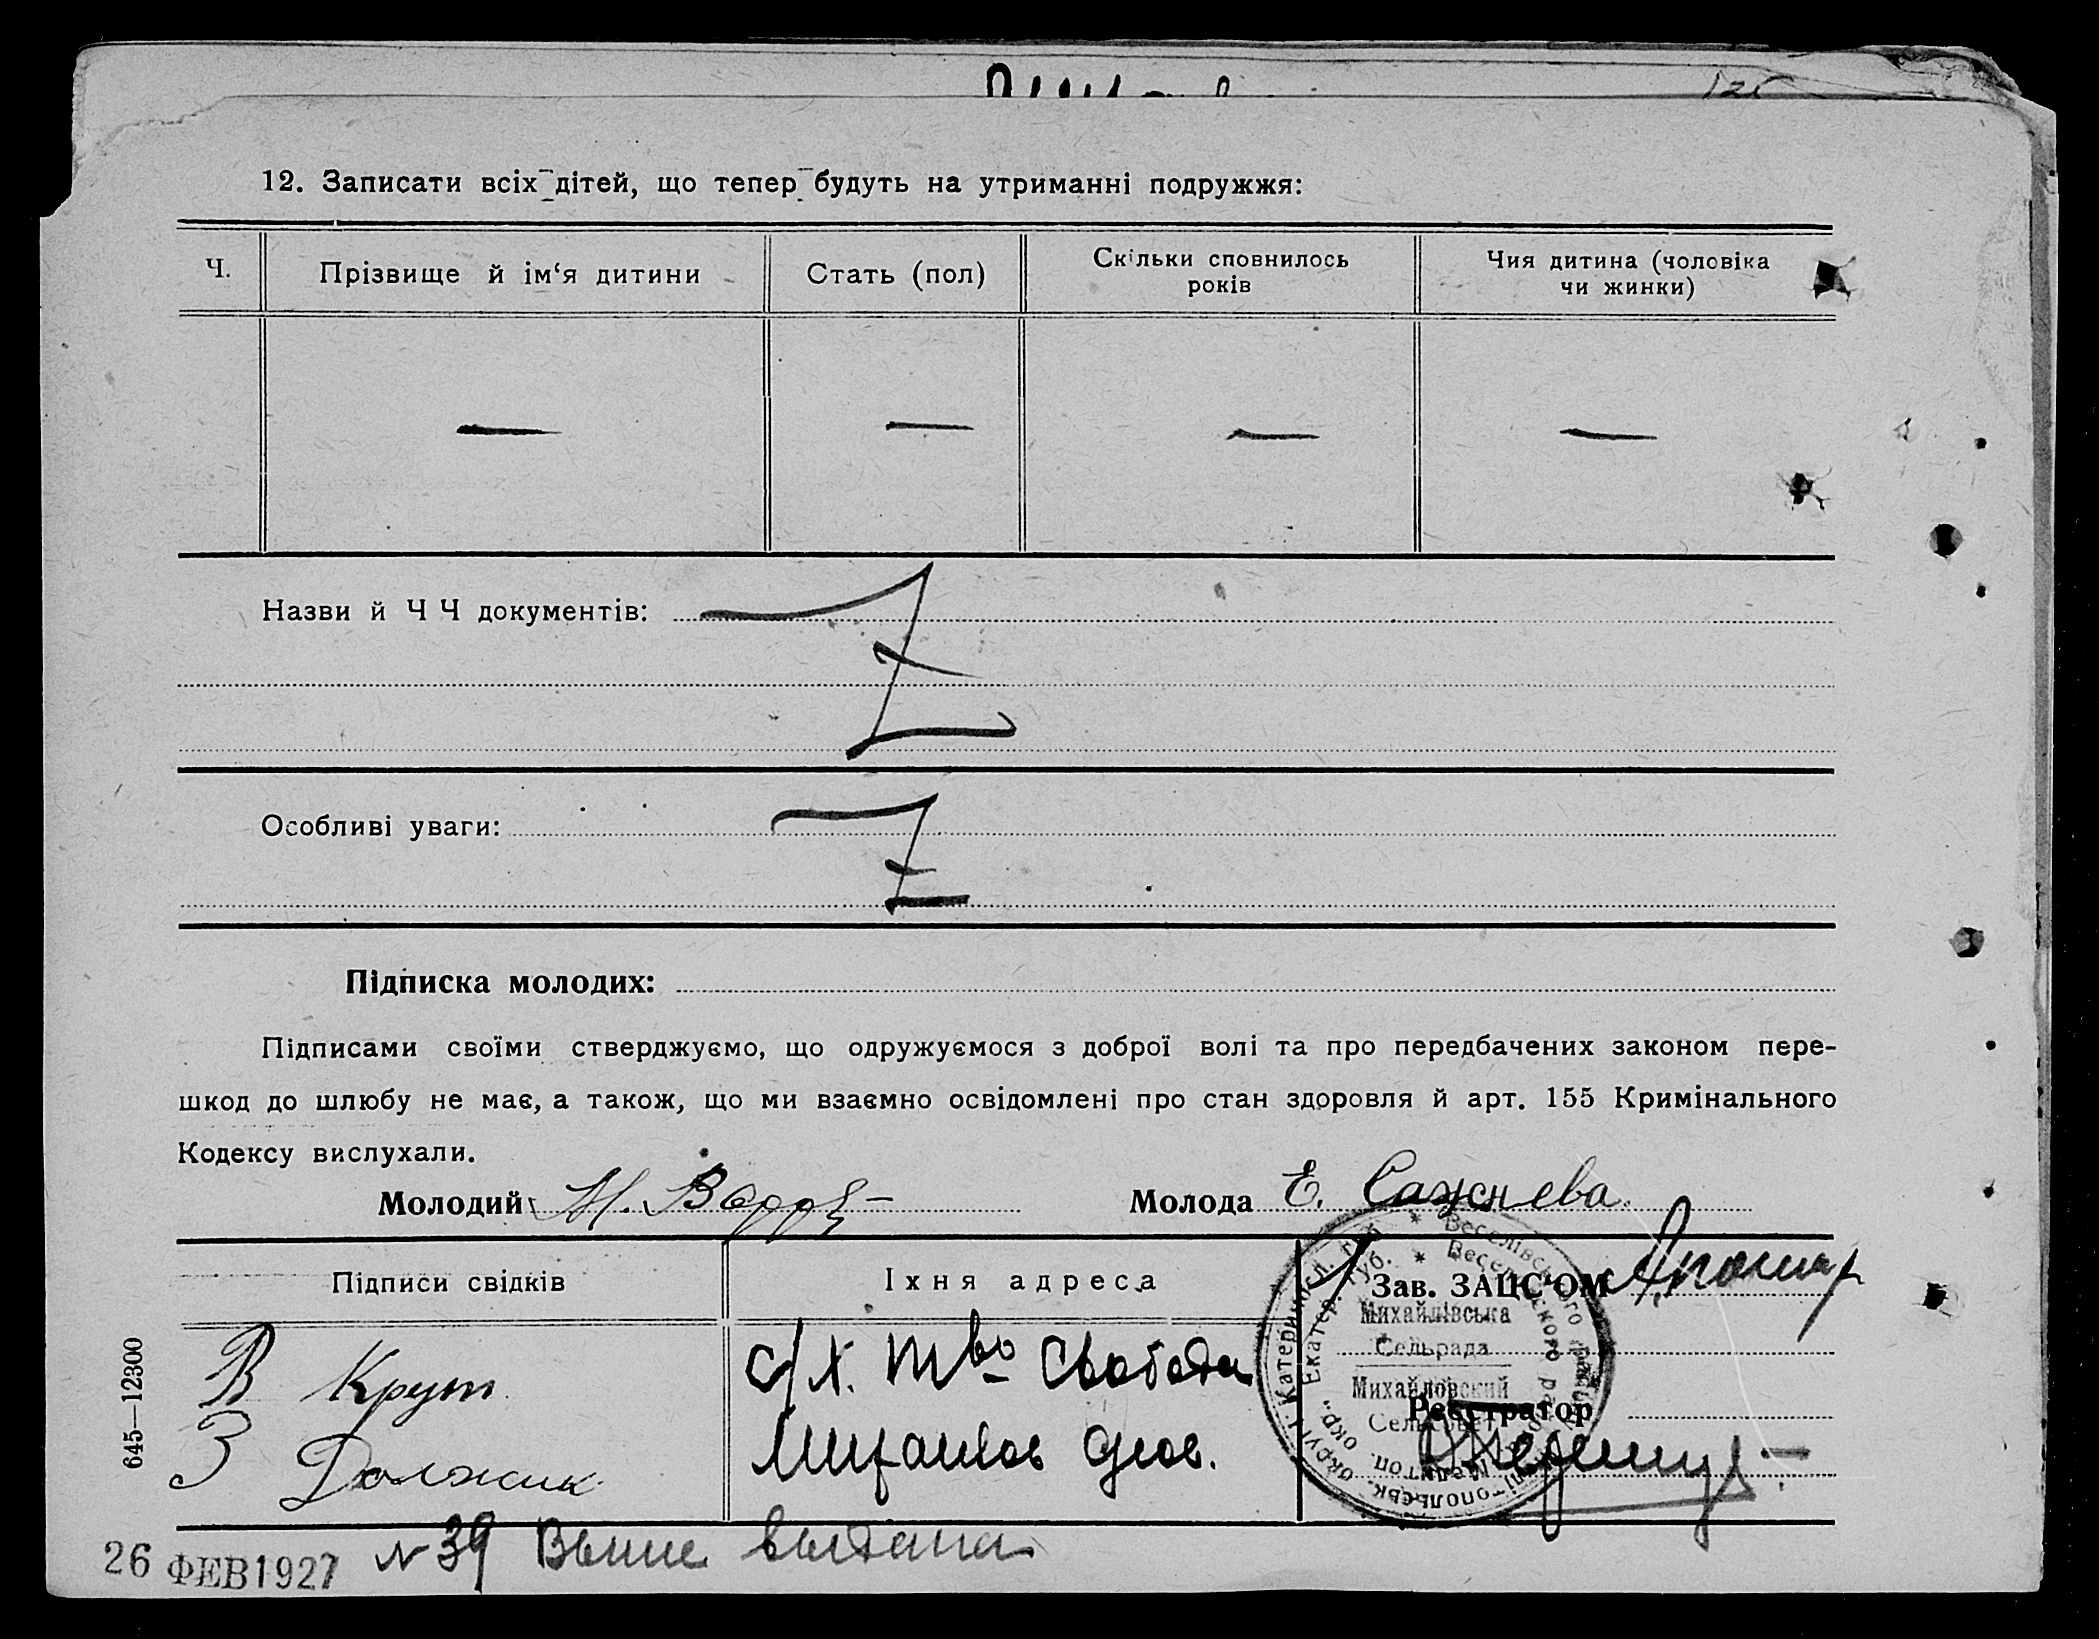 12. Записати всіх дітей, що тепер будуть на утриманні подружжя:
Ч.
Прізвище й ім‘я дитини
Стать (пол)
Скільки сповнилось
років
Чия дитина (чоловіка
чи жинки)
— — — —
Назви й Ч Ч документів:
Особливі уваги:
Підписка молодих:
Підписами своїми стверджуємо, що одружуємося з доброї волі та про передбачених законом пере-
шкод до шлюбу не має, а також, що ми взаємно освідомлені про стан здоровля й арт. 155 Кримінального
Кодексу вислухали.
Молодий
Молода Е. Сажнева
Підписи свідків
Іхня адреса
Зав. ЗАЦС‘ОМ
В Крут
З Должик
с/х. тво Свобода
Михайлов
Михайлівська
Сельрада
Михайловский
Реєстратор
645—12300
26 ФЕВ 1927
№ 39